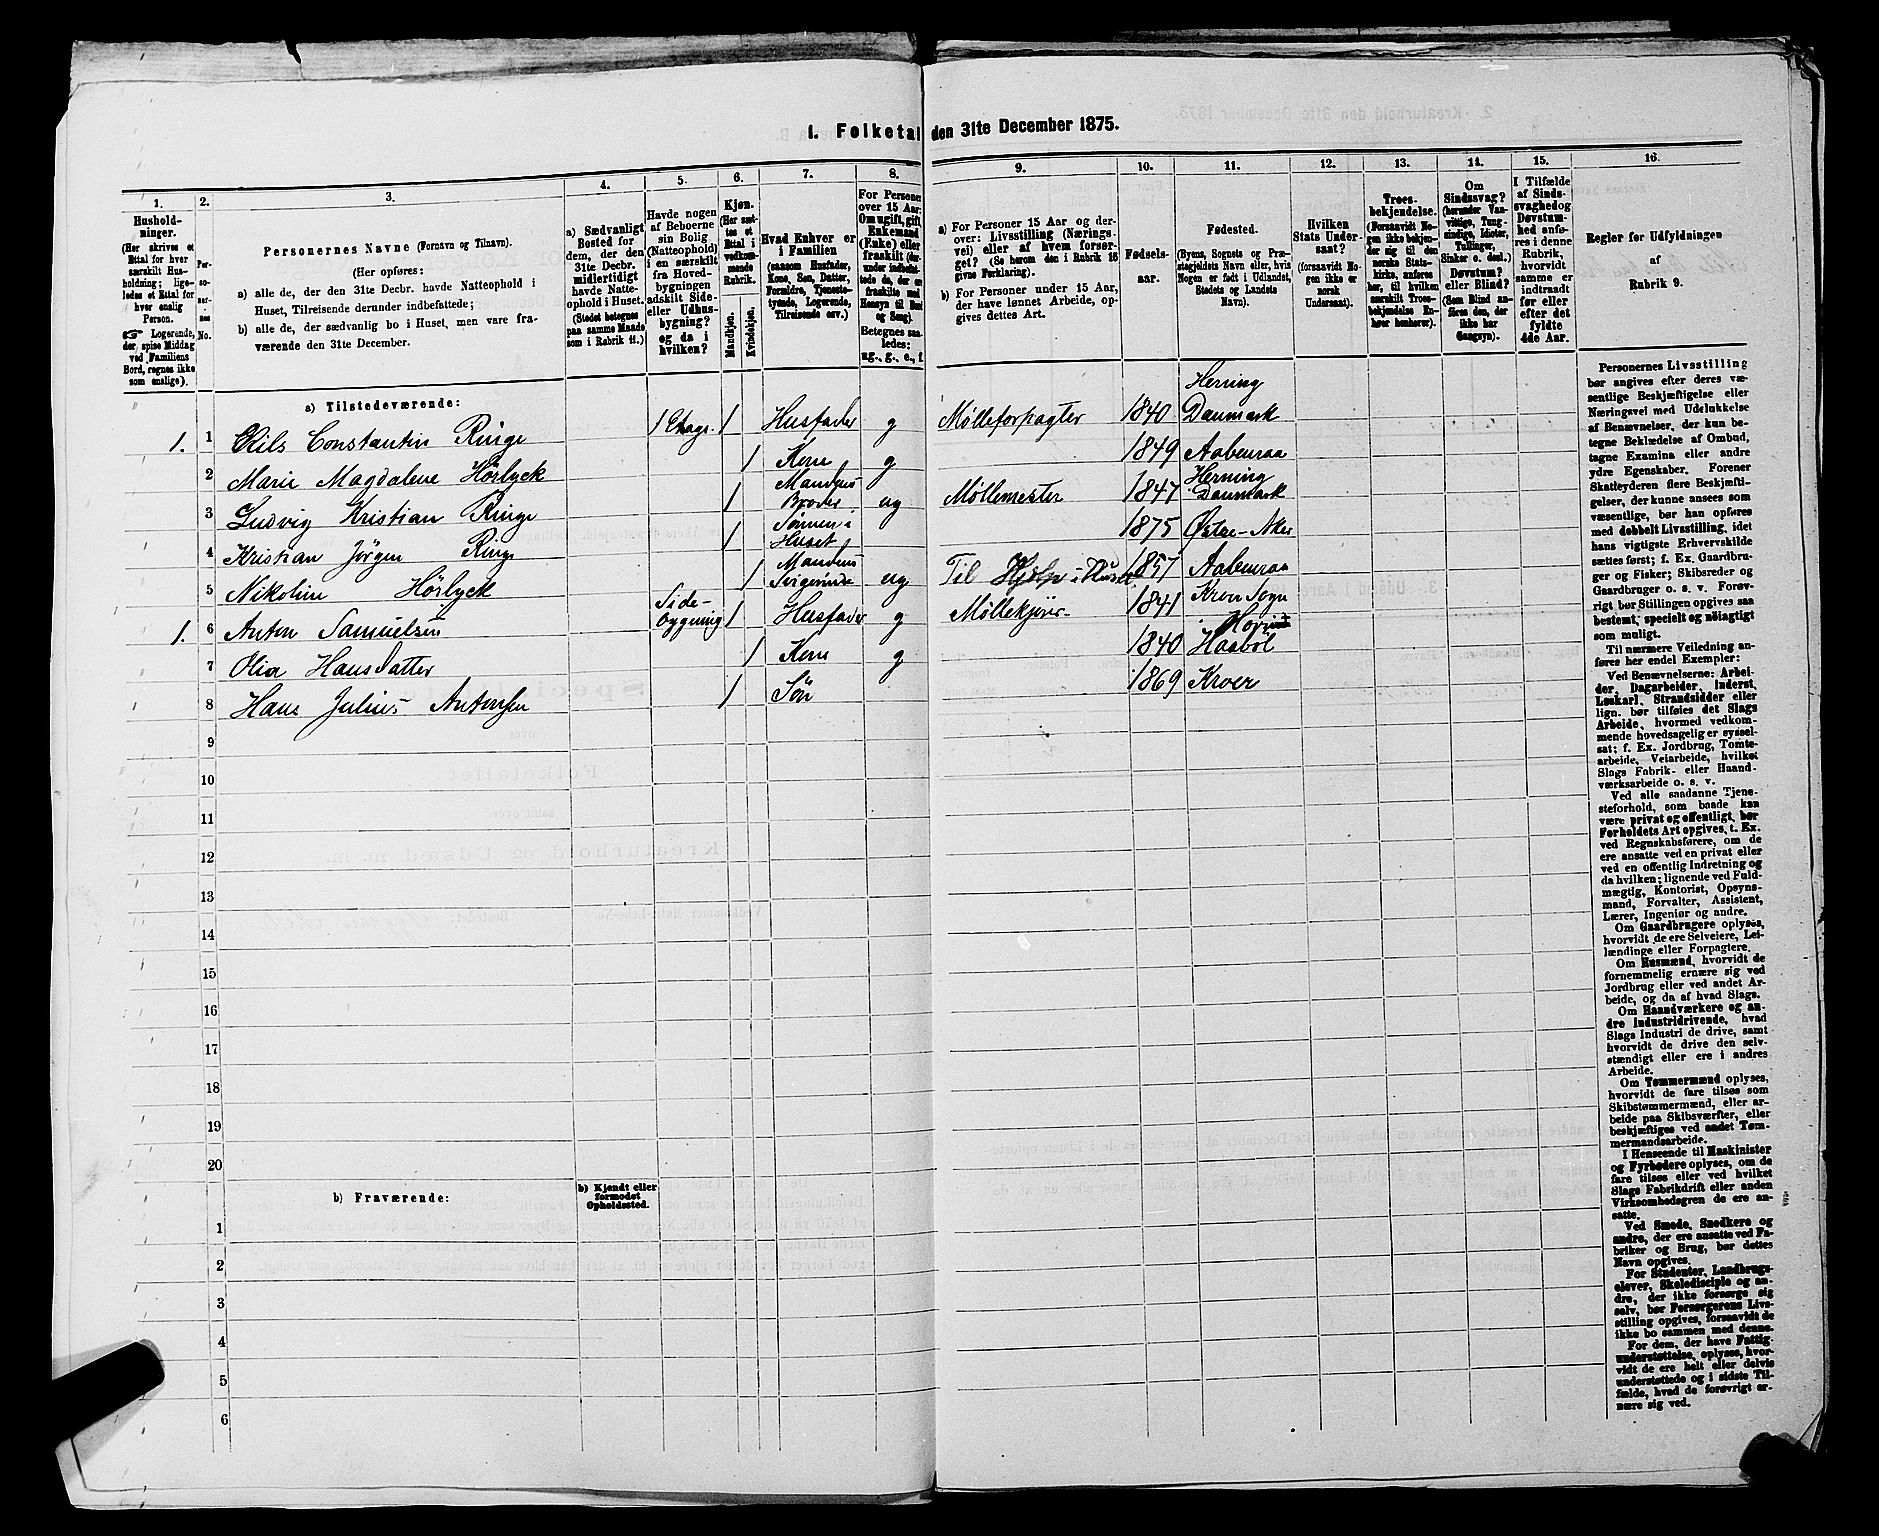 1. Folketal den 31te December 1875.
1.
Hushold-
ninger.
(Her skrives et
Ettal for hver
særskilt Hus-
holdning; lige-
ledes et Ettal for
hver enslig
Person.
☞ Logerende,
der spise Middag
ved Familiens
Bord, regnes ikke
som enslige).
2.
No.
3.
Personernes Navne (Fornavn og Tilnavn).
(Her opføres:
a) alle de, der den 31te Decbr. havde Natteophold i
Huset, Tilreisende derunder indbefattede;
b) alle de, der sædvanlig bo i Huset, men vare fra-
værende den 31te December.
4.
a) Sædvanligt
Bosted for
dem, der den
31te Decbr.
midlertidigt
havde Natte-
ophold i Huset.
(Stedet betegnes
paa samme Maade
som i Rubrik 11.)
5.
Havde nogen
af Beboerne
sin Bolig
(Natteophold)
i en særskilt
fra Hoved-
bygningen
adskilt Side-
eller Udhus-
bygning?
og da i
hvilken?
6.
Kjøn.
(Her sæt-
tes et
Ettal i
vedkom-
mende
Rubrik.
Mandkjøn.
Kvindekjøn.
7.
Hvad Enhver er
i Familien
(saasom Husfader,
Kone, Søn, Datter,
Forældre, Tjeneste-
tyende, Logerende,
Tilreisende osv.)
8.
For Personer
over 15 Aar:
Om ugift, gift
Enkemand
(Enke) eller
fraskilt
Betegnes saa-
ledes:
ug., g., e., f.
9.
a) For Personer 15 Aar og der-
over: Livsstilling (Nærings-
vei) eller af hvem forsør-
get? (Se herom den i Rubrik 16
givne Forklaring).
b) For Personer under 15 Aar,
der have lønnet Arbeide, op-
gives dettes Art.
10.
Fødsels-
aar.
11.
Fødested.
(Byens, Sognets og Præ-
stegjeldets Navn eller, hvis
Nogen er født i Udlandet,
Stedets og Landets
Navn).
12.
Hvilken
Stats Under-
saat?
(forsaavidt No-
gen ikke er
norsk
Undersaat).
13.
Troes-
bekjendelse.
(Forsaavidt No-
gen ikke bekjen-
der sig til den
norske Stats-
kirke, anføres
her, til hvilken
særskilt Troes-
bekjendelse En-
hver henhører).
14.
Om
Sindssvag?
(herunder Van-
vittige, Tung-
sindige, Idioter,
Tullinger,
Sinker o. desl.)
Døvstum?
eller Blind?
(Som Blind an-
føres den, der
ikke har
Gangsyn).
15.
I Tilfælde
af Sinds-
svaghed og
Døvstum-
hed anfø-
res i denne
Rubrik,
hvorvidt
samme er
indtraadt
før eller
efter det
fyldte
4de Aar.
16.
Regler for Udfyldningen
af
Rubrik 9.
a) Tilstedeværende:
1. 1 Nils Constantin Ringe 1 Etage. 1 Husfader g Mølleforpagter 1840 Herning Danmark
2 Marie Magdalene Hörlyck 1 Kone g 1849 Aabenraa
3 Ludvig Kristian Ringe 1 Mandens Broder ug Möllemester 1847 Herning Danmark
4 Kristian Jörgen Ringe 1 Sønnen i Huset 1875 Østre-Aker
5 Nikoline Hörlyck 1 Mandens Svigerinde ug Til Hjelp i Huset 1857 Aabenraa
1. 6 Anton Samuelsen Side-bygning 1 Husfader g Möllekjører 1841 Kroer Sogn
7 Olia Hansdatter 1 Kone g 1840 Haabøl
8 Hans Julius Antonsen 1 Søn 1869 Kroer
9
10
11
12
13
14
15
16
17
18
19
20
b) Fraværende:
b) Kjendt eller
formodet
Opholdssted.
1
2
3
4
5
6
Personernes Livsstilling
bør angives efter deres væ-
sentlige Beskjæftigelse eller
Næringsvei med Udelukkelse
af Benævnelser, der kun be-
tegne Beklædelse af Ombud,
tagne Examina eller andre
ydre Egenskaber. Forener
Skatteyderen flere Beskjæfti-
gelser, der kunne ansees som
væsentlige, bør han opføres
med dobbelt Livsstilling, idet
hans vigtigste Erhvervskilde
sættes først; f. Ex. Gaardbru-
ger og Fisker; Skibsreder og
Gaardbruger o. s. v. Forøv-
rigt bør Stillingen opgives saa
bestemt, specielt og nøiagtigt
som muligt.
Til nærmere Veiledning an-
føres her endel Exempler:
Ved Benævnelserne: Arbei-
der, Dagarbeider, Inderst,
Løskarl, Strandsidder eller
lign. bør tilføies det Slags
Arbeide, hvormed vedkom-
mende hovedsagelig er syssel-
sat; f. Ex. Jordbrug, Tomte-
arbeide, Veiarbeide, hvilket
Slags Fabrik- eller Haand-
værksarbeide o. s. v.
Ved alle saadanne Tjene-
steforhold, som baade kan
være privat og offentligt, bør
Forholdets Art opgives, t. Ex.
ved Regnskabsførere, om de
ere ansatte ved en privat eller
ved en offentlig Indretning og
da hvilken; lignende ved Fuld-
mægtig, Kontorist, Opsyns-
mand, Forvalter, Assistent,
Lærer, Ingeniør og andre.
Om Gaardbrugere oplyses,
hvorvidt de ere Selveiere, Lei-
lændinge eller Forpagtere.
Om Husmænd, hvorvidt de
fornemmelig ernære sig ved
Jordbrug eller ved andet Ar-
beide, og da af hvad Slags.
Om Haandværkere og an-
dre Industridrivende, hvad
Slags Industri de drive, samt
hvorvidt de drive den selv-
stændigt eller ere i andres
Arbeide.
Om Tømmermænd oplyses,
hvorvidt de fare tilsøs som
Skibstømmermænd, eller ar-
beide paa Skibsværfter, eller
beskjæftiges ved andet Tøm-
mermandsarbeide.
I Henseende til Maskinister
og Fyrbødere oplyses, om de
fare tilsøs eller ved hvilket
Slags Fabrikdrift eller anden
Virksomhedsgren de ere an-
satte.
Ved Smede, Snedkere og
andre, der ere ansatte ved Fa-
briker og Brug, bør dettes
Navn opgives.
For Studenter, Landbrugs-
elever, Skoledisciple og an-
dre, der ikke forsørge sig
selv, bør Forsørgerens Livs-
stilling opgives, forsaavidt de
ikke bo sammen med denne.
For dem, der have Fattig-
understøttelse, oplyses, hvor-
vidt de ere helt eller delvis
understøttede og i sidste Til-
fælde, hvad de forøvrigt er-
nære sig ved.